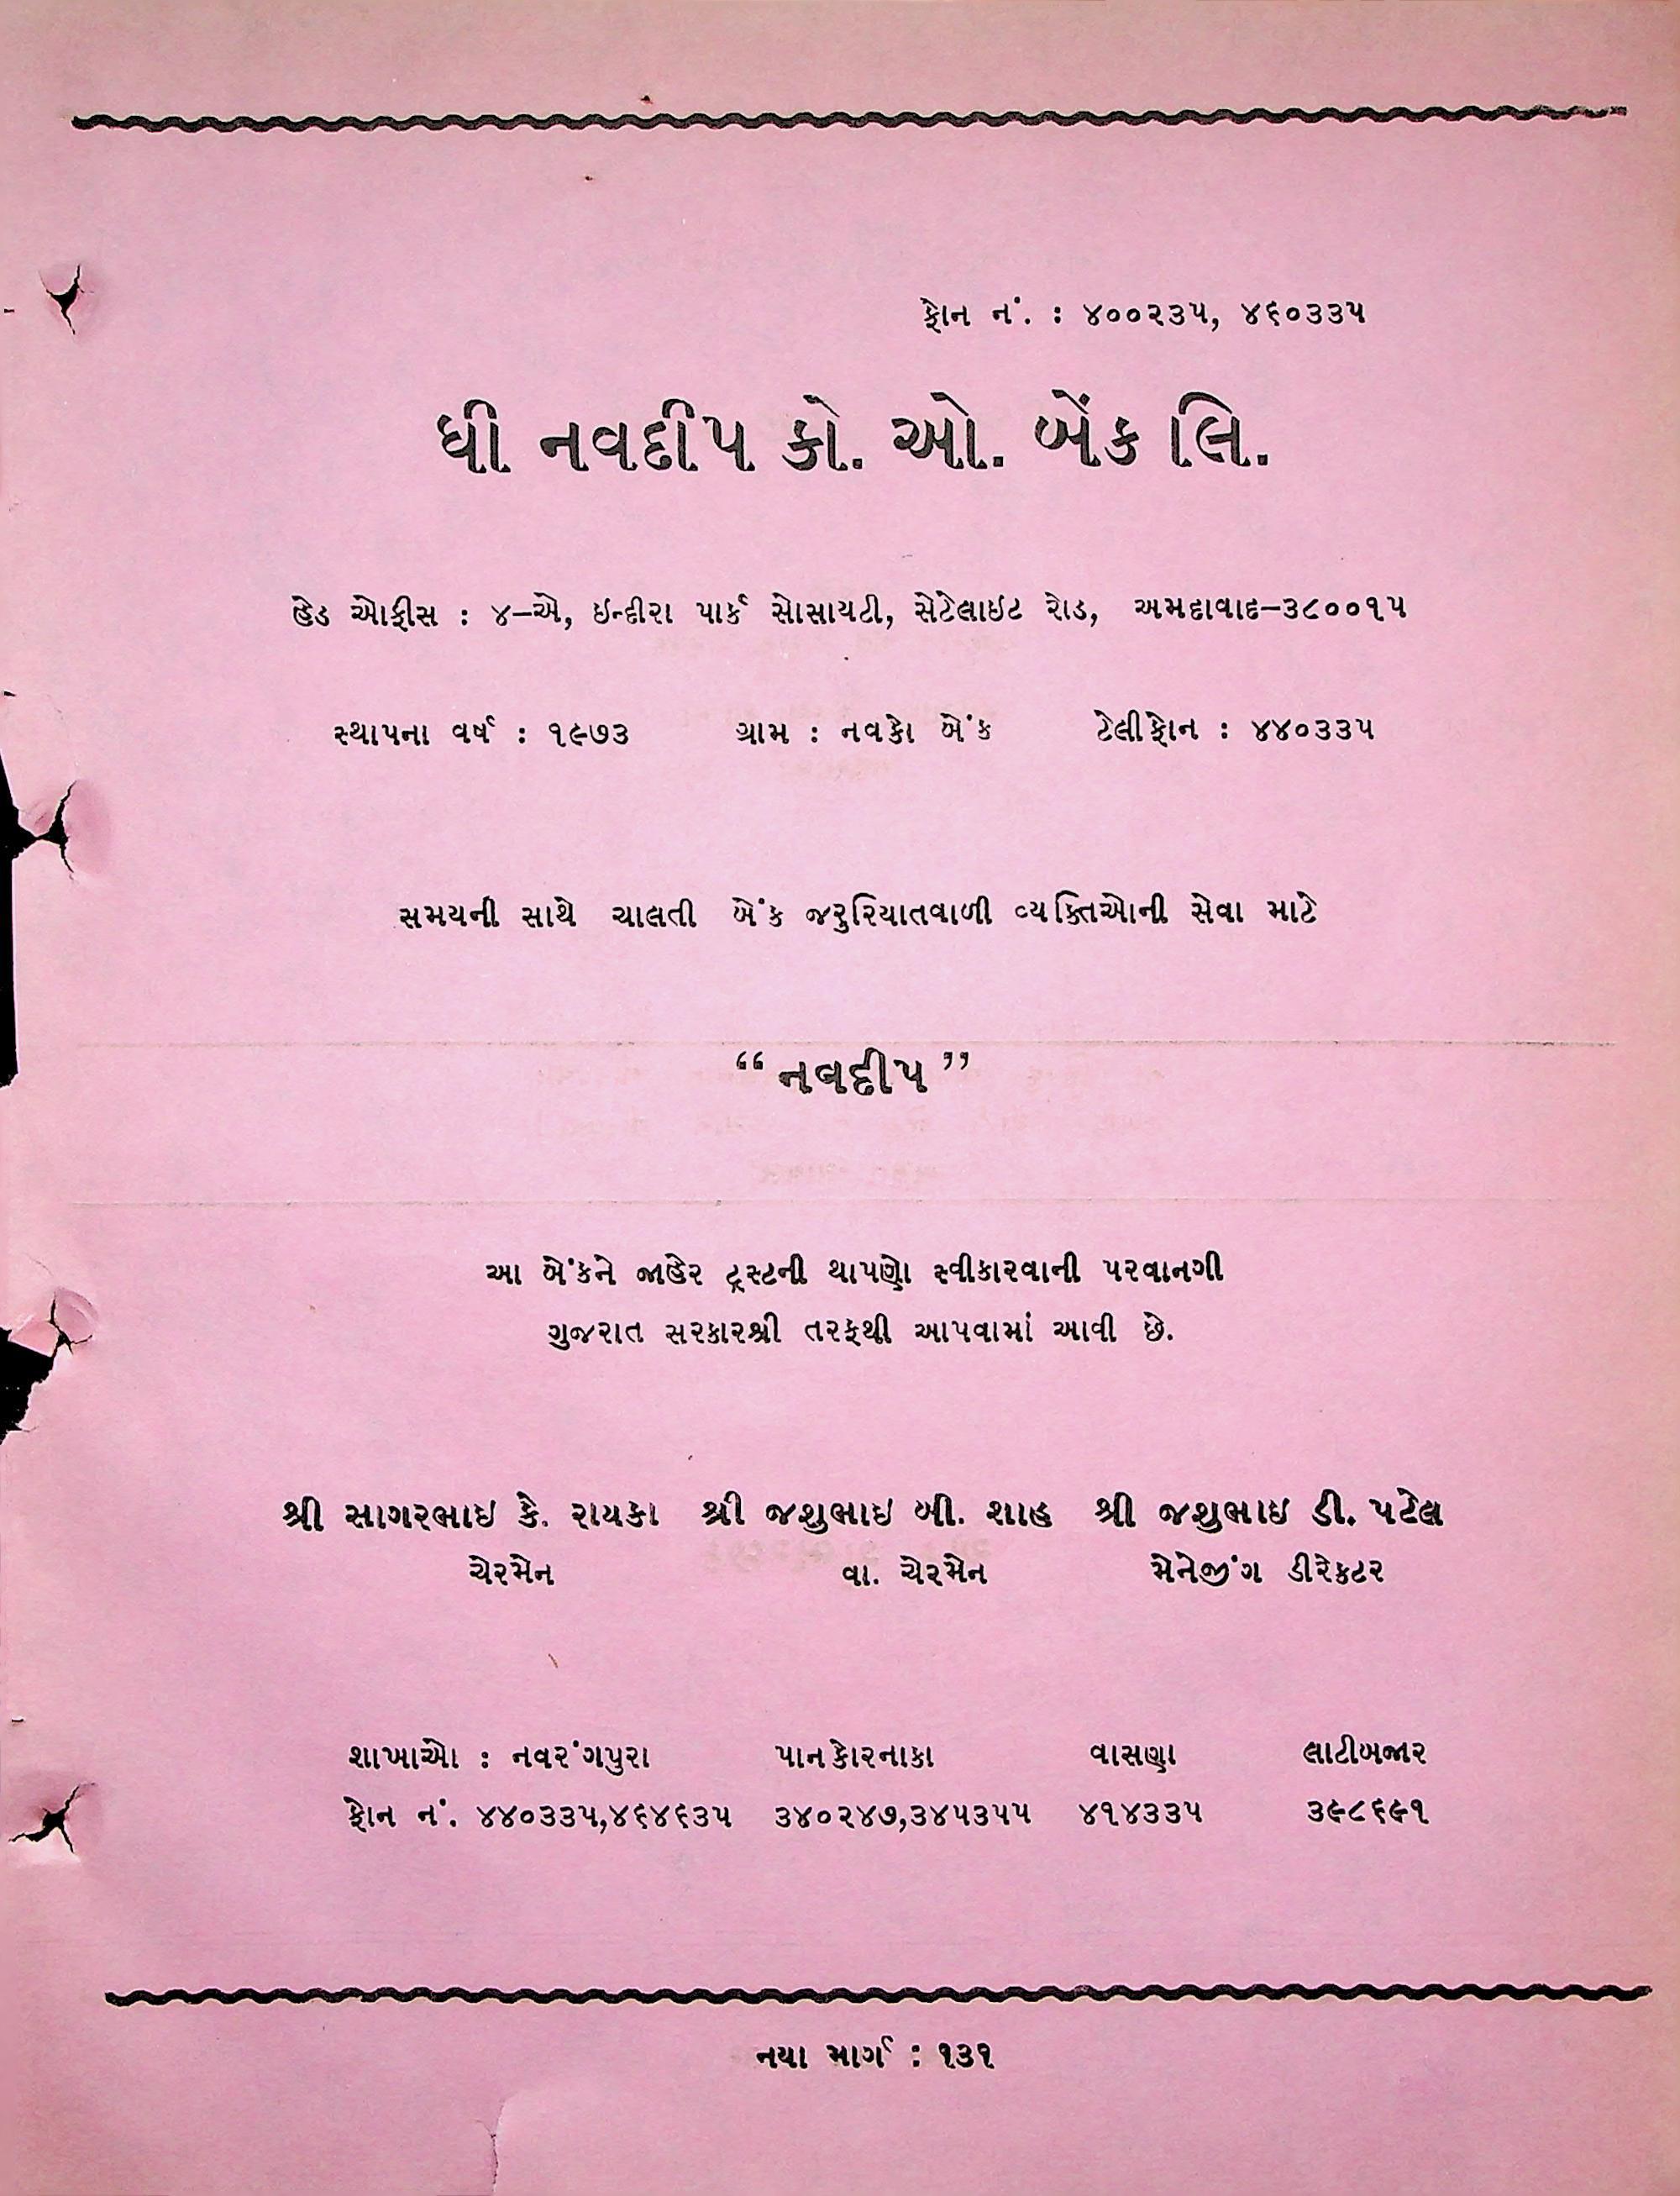 ફોન નં. : ૪૦૦૨૩૫, ૪૬૦૩૩૫
ધી નવદીપ કો. ઓ. બેંક લિ.
હેડ ઓફીસ : ૪–એ, ઇન્દીરા પાર્ક સોસાયટી, સેટેલાઇટ રોડ, અમદાવાદ–૩૮૦૦૧૫
સ્થાપના વર્ષ : ૧૯૭૩ ગ્રામ : નવકો બેંક ટેલીફોન : ૪૪૦૩૩૫
સમયની સાથે ચાલતી બેંક જરુરિયાતવાળી વ્યક્તિઓની સેવા માટે
“નવદીપ”
આ બેંકને જાહેર ટ્રસ્ટની થાપણો સ્વીકારવાની પરવાનગી
ગુજરાત સરકારશ્રી તરફથી આપવામાં આવી છે.
શ્રી સાગરભાઇ કે. રાયકા શ્રી જશુભાઇ બી. શાહ શ્રી જશુભાઇ ડી. પટેલ
ચેરમેન વા. ચેરમેન મેનેજીંગ ડીરેકટર
શાખાઓ : નવરંગપુરા પાનકોરનાકા વાસણા લાટીબજાર
ફોન નં. ૪૪૦૩૩૫,૪૬૪૬૩૫ ૩૪૦૨૪૭,૩૪૫૩૫૫ ૪૧૪૩૩૫ ૩૯૮૬૯૧
નયા માર્ગ : ૧૩૧